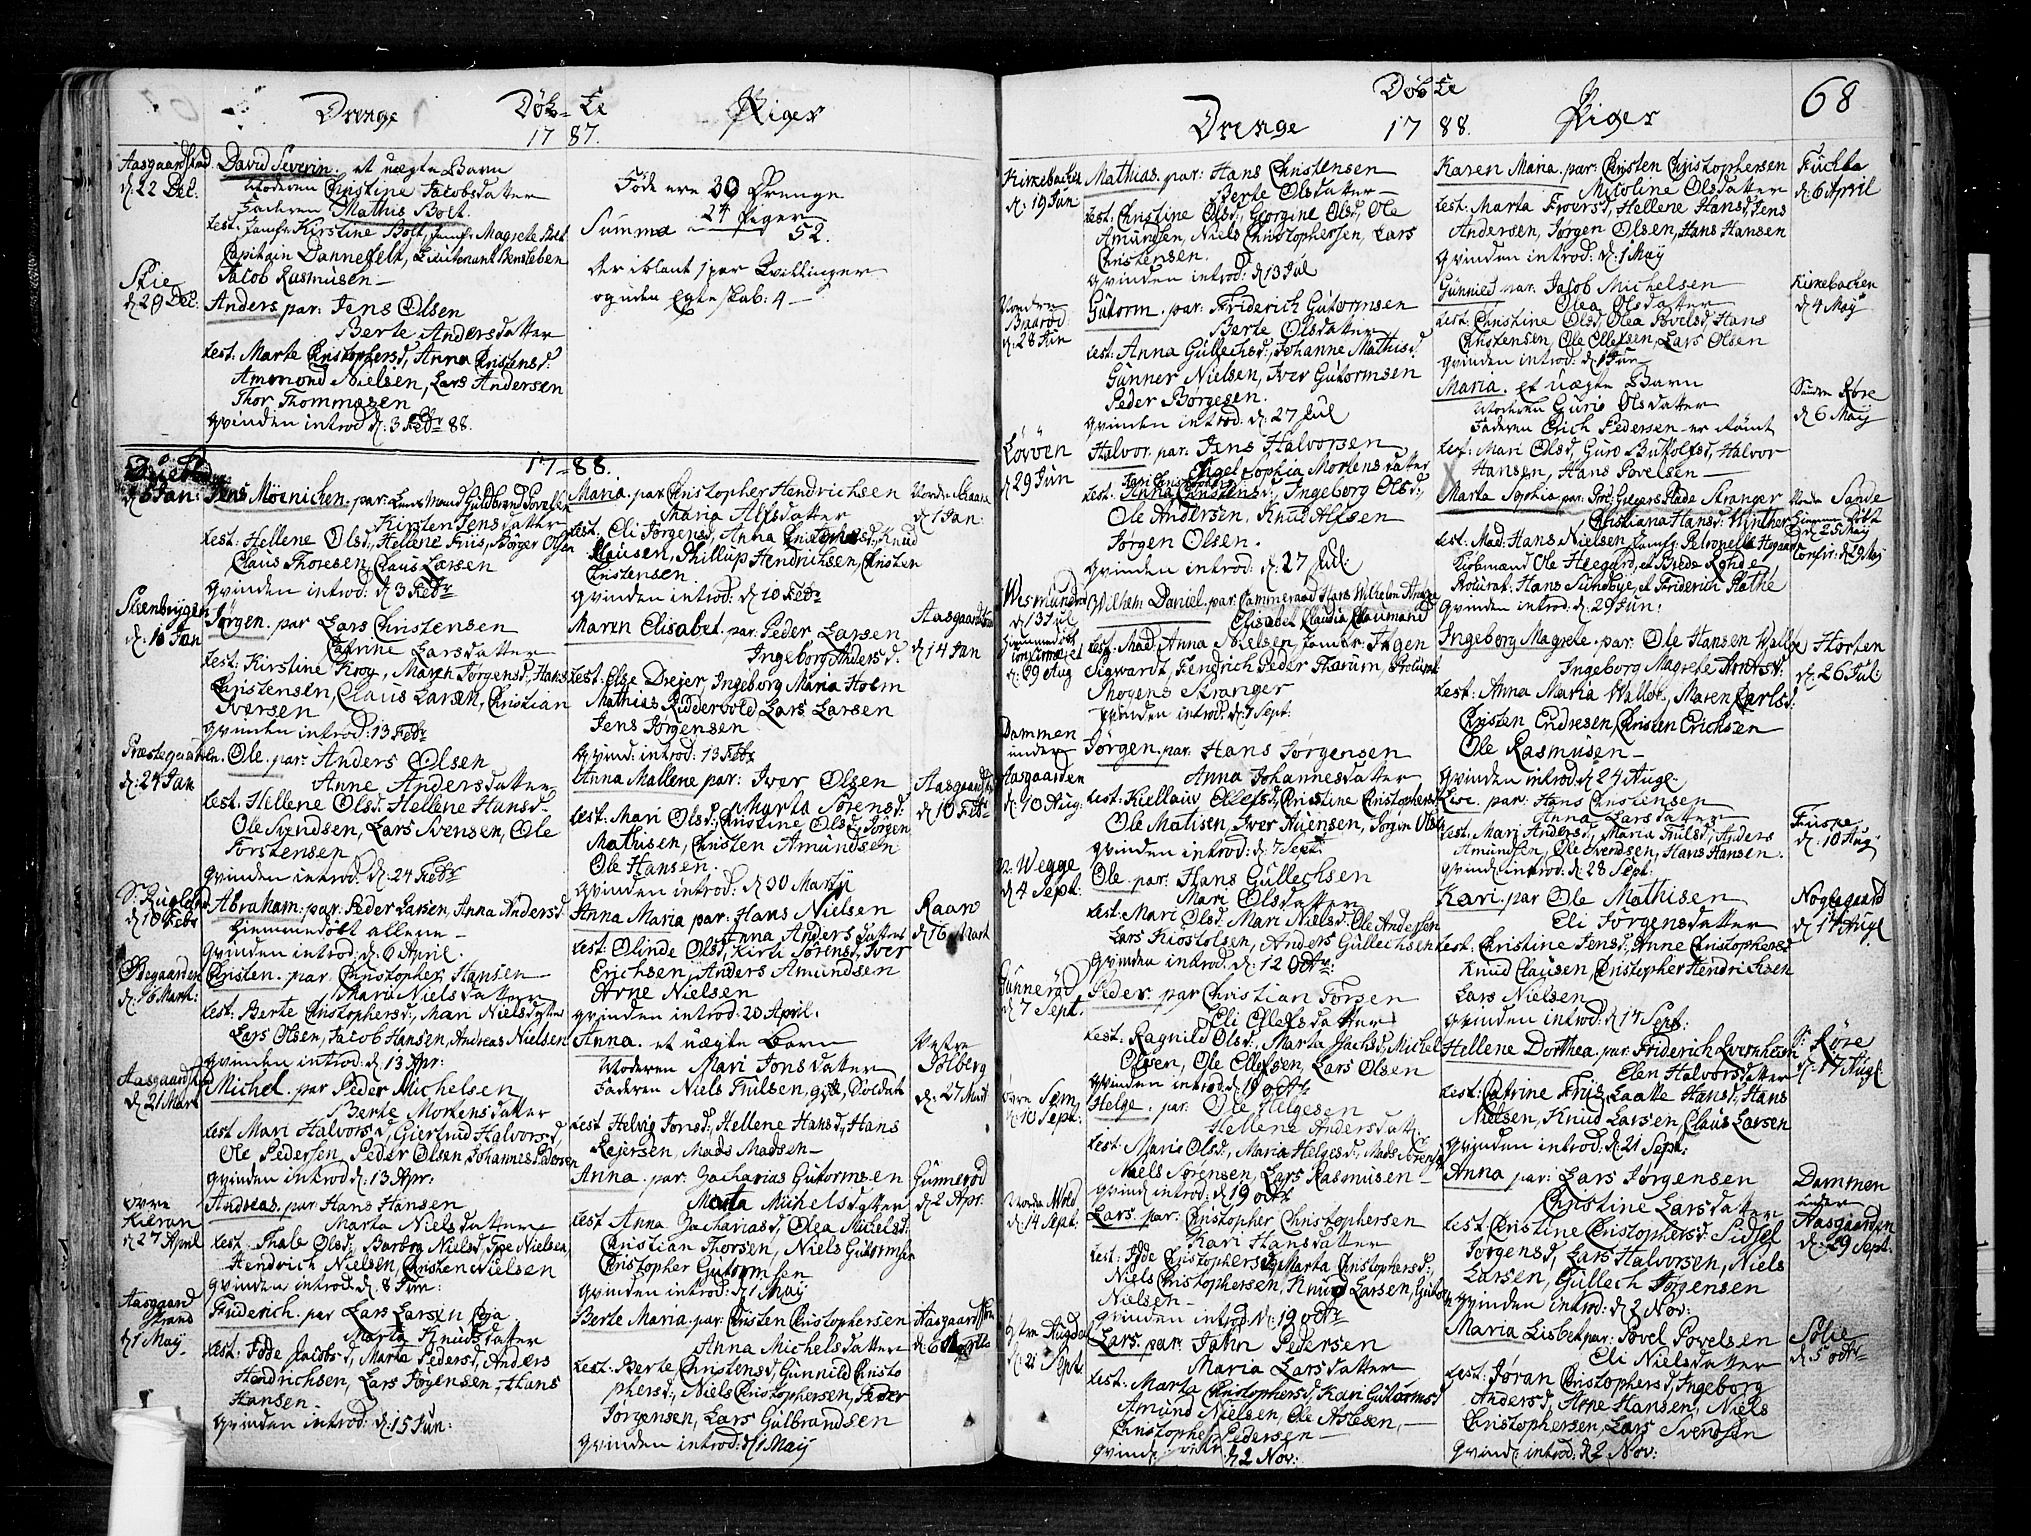 Drenge
Døb-te
Piger
17 87.
Aasgaardstrad
d: 22 Dec:
David Severin. et uægte Barn
Moderen Christine Jacobsdatter
Faderen Mathis Bolt.
test: Jomfr: Kirstine Bolt, Jomfr: Magrete Bolt
Capitain Dannefelt, Lieutenant
Jacob Rasmusen
Skie
d: 29 Dec:
Anders par: Jens Olsen
Berte Andersdatter
test: Marte Christophersd, Anna Christensd:
Ammond Nielsen, Lars Andersen
Thor Thommasen
qvinden introd d: 3 Febr 88.
Føde ere 30 Drenge
24 Piger
Summa 52.
Der iblant 1 par Tvillinger
og uden Egteskab: 4
17-88.
d: 6 Jan:
Jens Mørnichen. par: Guldbrand Povelsen
Kirsten Jensdatter
test: Hellene Olsd, Hellene Friis, Børger Olsen
Claus Thoresen, Claus Larsen
qvinden introd: d: 3 Febr
Steenbryggen
d: 10 Jan
Jørgen. par Lars Christensen
Catrine Larsdatter
test: Kirstine Krog, Maren Jørgensd, Hans
Christensen, Claus Larsen, Christian
Iversen
qvinden introd: 13 Febr
Præstegaarden
d: 24 Jan
Ole. par: Anders Olsen
Anne Andersdatter
test: Hellene Olsd. Hellene Hansd
Ole Svendsen, Lars Svensen, Ole
Torstensen
qvinden introd. d: 24 Febr
d: 10 Febr
Abraham. par: Peder Larsen, Anna Andersd
Hiemmedøbt allene
qvinden introd. d: 6 April.
Øvegaarden
d: 16 Mart:
Christen. par Christopher Hansen
Mari Nielsdatter
test: Berte Christophersd, Mari Nielsdatter
Lars Olsen, Jacob Hansen, Andreas Nielsen
qvinden introd: d 13 Apr:
d 21 Mart
Michel. par Peder Michelsen
Berte Mortensdatter
test Mari Halvorsd, Giertrud Halvorsd,
Ole Pedersen, Peder Olsen, Johannes Pedersen
qvinden introd d: 13 Apr:
øvre
Kieran
d 27 April
Andreas. par Hans Hansen
Marta Nielsdatter
test. Thale Olsd, Barbro Nielsd, Type Nielsen,
Hendrich Nielsen, Christen Nielsen
qvinden introd: d 8 Jun:
Aasgaard
strand
d 1 May
Friderich. par Lars Larsen Loja
Marta Knudsdatter
test: Føde Jacobsd, Marta Pedersd, Anders
Hendrichsen, Lars Jørgensen, Hans
Hansen
qvinden introd: d: 15 Jun:
Maria. par Christopher Hendrichsen
Maria Alfsdatter
test. Eli Jørgensd, Anna Christensd, Knud
Clausen, Phillup Hendrichsen, Christen
Christensen.
qvinden introd: d 10 Febr
d 1 Jan:
Maren Elisabet. par: Peder Larsen
Ingeborg Andersd.
test: Else Drejer, Ingeborg Maria Holm
Mathias Riddervold Lars Larsen
Jens Jørgensen
qvind: introd: 13 Febr
Aasgaardstran
d: 14 Jan
Anna Mallene par: Iver Olsen
Marta Sørensd:
test: Mari Olsd, Christine Olsd, Jørgen
Mathisen, Christen Amundsen
Ole Hansen.
qvinden introd: d 30 Martij
d: 10 Feb:
Anna Maria par: Hans Nielsen
Anna Andersdatter
test: Olinde Olsd, Kirti Sørensd, Iver
Erichsen, Anders Amundsen
Arne Nielsen
qvinden introd. 20 April.
Raan
d: 16 Mart
Anna. et uægte barn
Moderen Mari Jonsdatter
Faderen Niels Truelsen, gift Soldat
test Helvig Jonsd, Hellene Hansd, Hans
Rejersen, Mads Madsen
Vestre
Solberg
d: 27 Mart
Anna. par: Zacharias Gutormsen
Marta Michelsdatter
test Anna Zachariasd, Olea Michelsd:
Christian Thorsen, Niels Gutormsen
Christopher Gutormsen
qvinden introd: d 1 Maij
Gunnerød
d 2 Apr:
Berte Maria. par: Christen Christophersen
Anna Michelsdatter
test: Berte Christensd, Gunnild Christo
phersd, Niels Christophersen, Peder
Jørgensen, Lars Gulbrandsen
qvinden introd: d 1 Maij
Drenge
Døbte
17 88.
Piger
68
Kirkebacken
d: 19 Jun
Mathias. par: Hans Christensen
Berte Olsdatter
test: Christine Olsd, Georgine Olsd, Ole
Amundsen, Niels Christophersen, Lars
Christensen.
qvinden introd: d: 13 Jul
d: 28 Jun
Gutorm. par: Friderich Gutormsen
Berte Olsdatter
test: Anna Gullechsd, Johanne Mathisd
Gunner Nielsen, Iver Gutormsen
Peder Børgesen.
qvinden introd: d: 27 Jul
Løvøen
d 29 Jun
Halvor. par: Jens Halvorsen
Engel Sophia Mortensdatter
test. Anna Christensd, Ingeborg Olsd,
Ole Andersen. Knud Alfsen
Jørgen Olsen.
qvinden introd: d: 27 Jul:
d 13 Jul
d: 29 Aug
Wilhelm Daniel. par: Cammeraad Hans Wilhelm
Elisabet Claudia
test. Mad: Anna Nielsen, Jomfr: Inger
Sigwardt, Peder Tharum, Procurat
Mogens Stranger
qvinden introd: d: 7 Sept:
Dammen
under
Aasgaarden
d: 10 Aug:
Jørgen. par: Hans Jørgensen
Anna Johannesdatter
test: Kiellaug Ollefsd, Christine Christophersd
Ole Matisen, Iver Auensen, Jørgen Olsen
qvinden introd: d: 7 Sept:
N: Wegge
d 4 Sept:
Ole. par: Hans Gullechsen
Mari Olsdatter
test: Mari Olsd. Mari Nielsd, Ole Andersen
Lars Kiøstolsen, Anders Gullechsen
qvinden introd. d: 12 Octr:
Gunnerød
d 7 Sept.
Peder. par Christian Torsen
Eli Ellefsdatter
test: Ragnild Olsd, Marta Jachsd, Michel
Olsen, Ole Ellefsen, Lars Olsen
qvinden introd: d 19 octr
øvre Sem
d: 10 Sept:
Helge. par: Ole Helgesen
Hellene Andersdatt:
test: Mari Olsd, Maria Helgesd, Mads Sørensen
Niels Sørensen, Lars Rasmusen
qvind introd: d 19 octr
d: 14 Sept:
Lars. par: Christopher Christophersen
Kari Hansdatter
test: Føde Christophersd, Marta Christophersd,
Niels Christophersen, Knud Larsen, Gutorm
Nielsen
qvinden introd: d: 19 octr
d: 21 Sept:
Lars. par. Jahn Pedersen
Maria Larsdatter
test: Marta Christophersd, Kari Gutormsd
Amund Nielsen, Ole Aslesen,
Christopher Pedersen
qvind: introd d 2 Nov:
Karen Maria. par: Christen Christophersen
Nicoline Olsdatter
test: Marta Troersd, Hellene Hansd, Jens
Andersen, Jørgen Olsen, Hans Hansen
qvinden introd: d: 1 May
d: 6 April
Gunnild par: Jacob Michelsen
Olea Olsdatter
test. Christine Olsd, Olea Povelsd, Hans
Christensen, Ole Ellefsen, Lars Olsen
qvinden introd: d: 1 Jun
Kirkebacken
d 4 May
Maria. et uægte Barn
Moderen Guri Olsdatter
Faderen Erich Pedersen er Rømt
test: Mari Olsd, Guro Butolfsd, Halvor
Hansen, Hans Povelsen
Søndre Røre
d 6 Maij
Marta Sophia par: Proc: Gregers Stranger
Christiana Hansd: Winther
test: Mad: Hans Nielsen Jomfr. Petronelle Heegaard
Kiøbmand Ole Heegard, et Brede
Procurat: Hans Sundbye, et Friderich Plathe
qvinden introd: d: 29 Jun:
Sande
d: 25 Maij
Confir: d 29 Maij
Ingeborg Magrete. par: Ole Hansen Walløe
Ingeborg Magrete
test: Anna Maria Walløe, Maren Carlsd:
Christen Endresen, Christen Erichsen
Ole Rasmusen
qvinden introd: d 24 Aug.
Horten
d: 26 Jul:
Live. par: Hans Christensen
Anna Larsdatter
test: Mari Andersd, Maria Trulsd, Anders
Amundsen, Ole Svendsen, Hans Hansen.
qvinden introd: d: 28 Sept:
d: 10 Aug
Kari. par Ole Mathisen
Eli Jørgensdatter
test: Christine Jensd, Anne Christophersd
Knud Clausen, Christopher Hendrichsen
Lars Nielsen
qvinden introd: d 14 Sept:
Nøglegaard
d: 17 Augl
Hellene Dorthea. par: Friderich
Elen Halvorsdatter
test: Catrine Friis, Laatte Hansd, Hans
Nielsen, Knud Larsen, Claus Larsen
qvinden introd: d: 21 Sept:
S: Røre
d: 17 Augl
Anna par: Lars Jørgensen
Christine Larsdatter
test Christine Christophersd. Sidsel
Jørgensd, Lars Halvorsen, Niels
Larsen, Gullech Jørgensen
qvinden introd: d: 2 Nov:
Dammen
under
Aasgaarden
d: 29 Sept:
Maria Lisbet par: Povel Povelsen
Eli Nielsdatter
test: Jøran Christophersd, Ingeborg
Andersd, Arne Hansen, Niels
Christophersen, Lars Svendsen
qvind: introd: d: 2 Nov:
Solie
d 5 octr